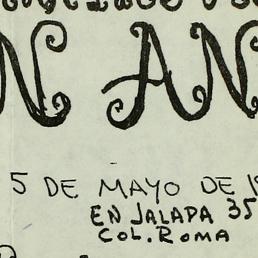 N AN
5 DE MAYO DE 1
EN JALAPA 35
COL. ROMA